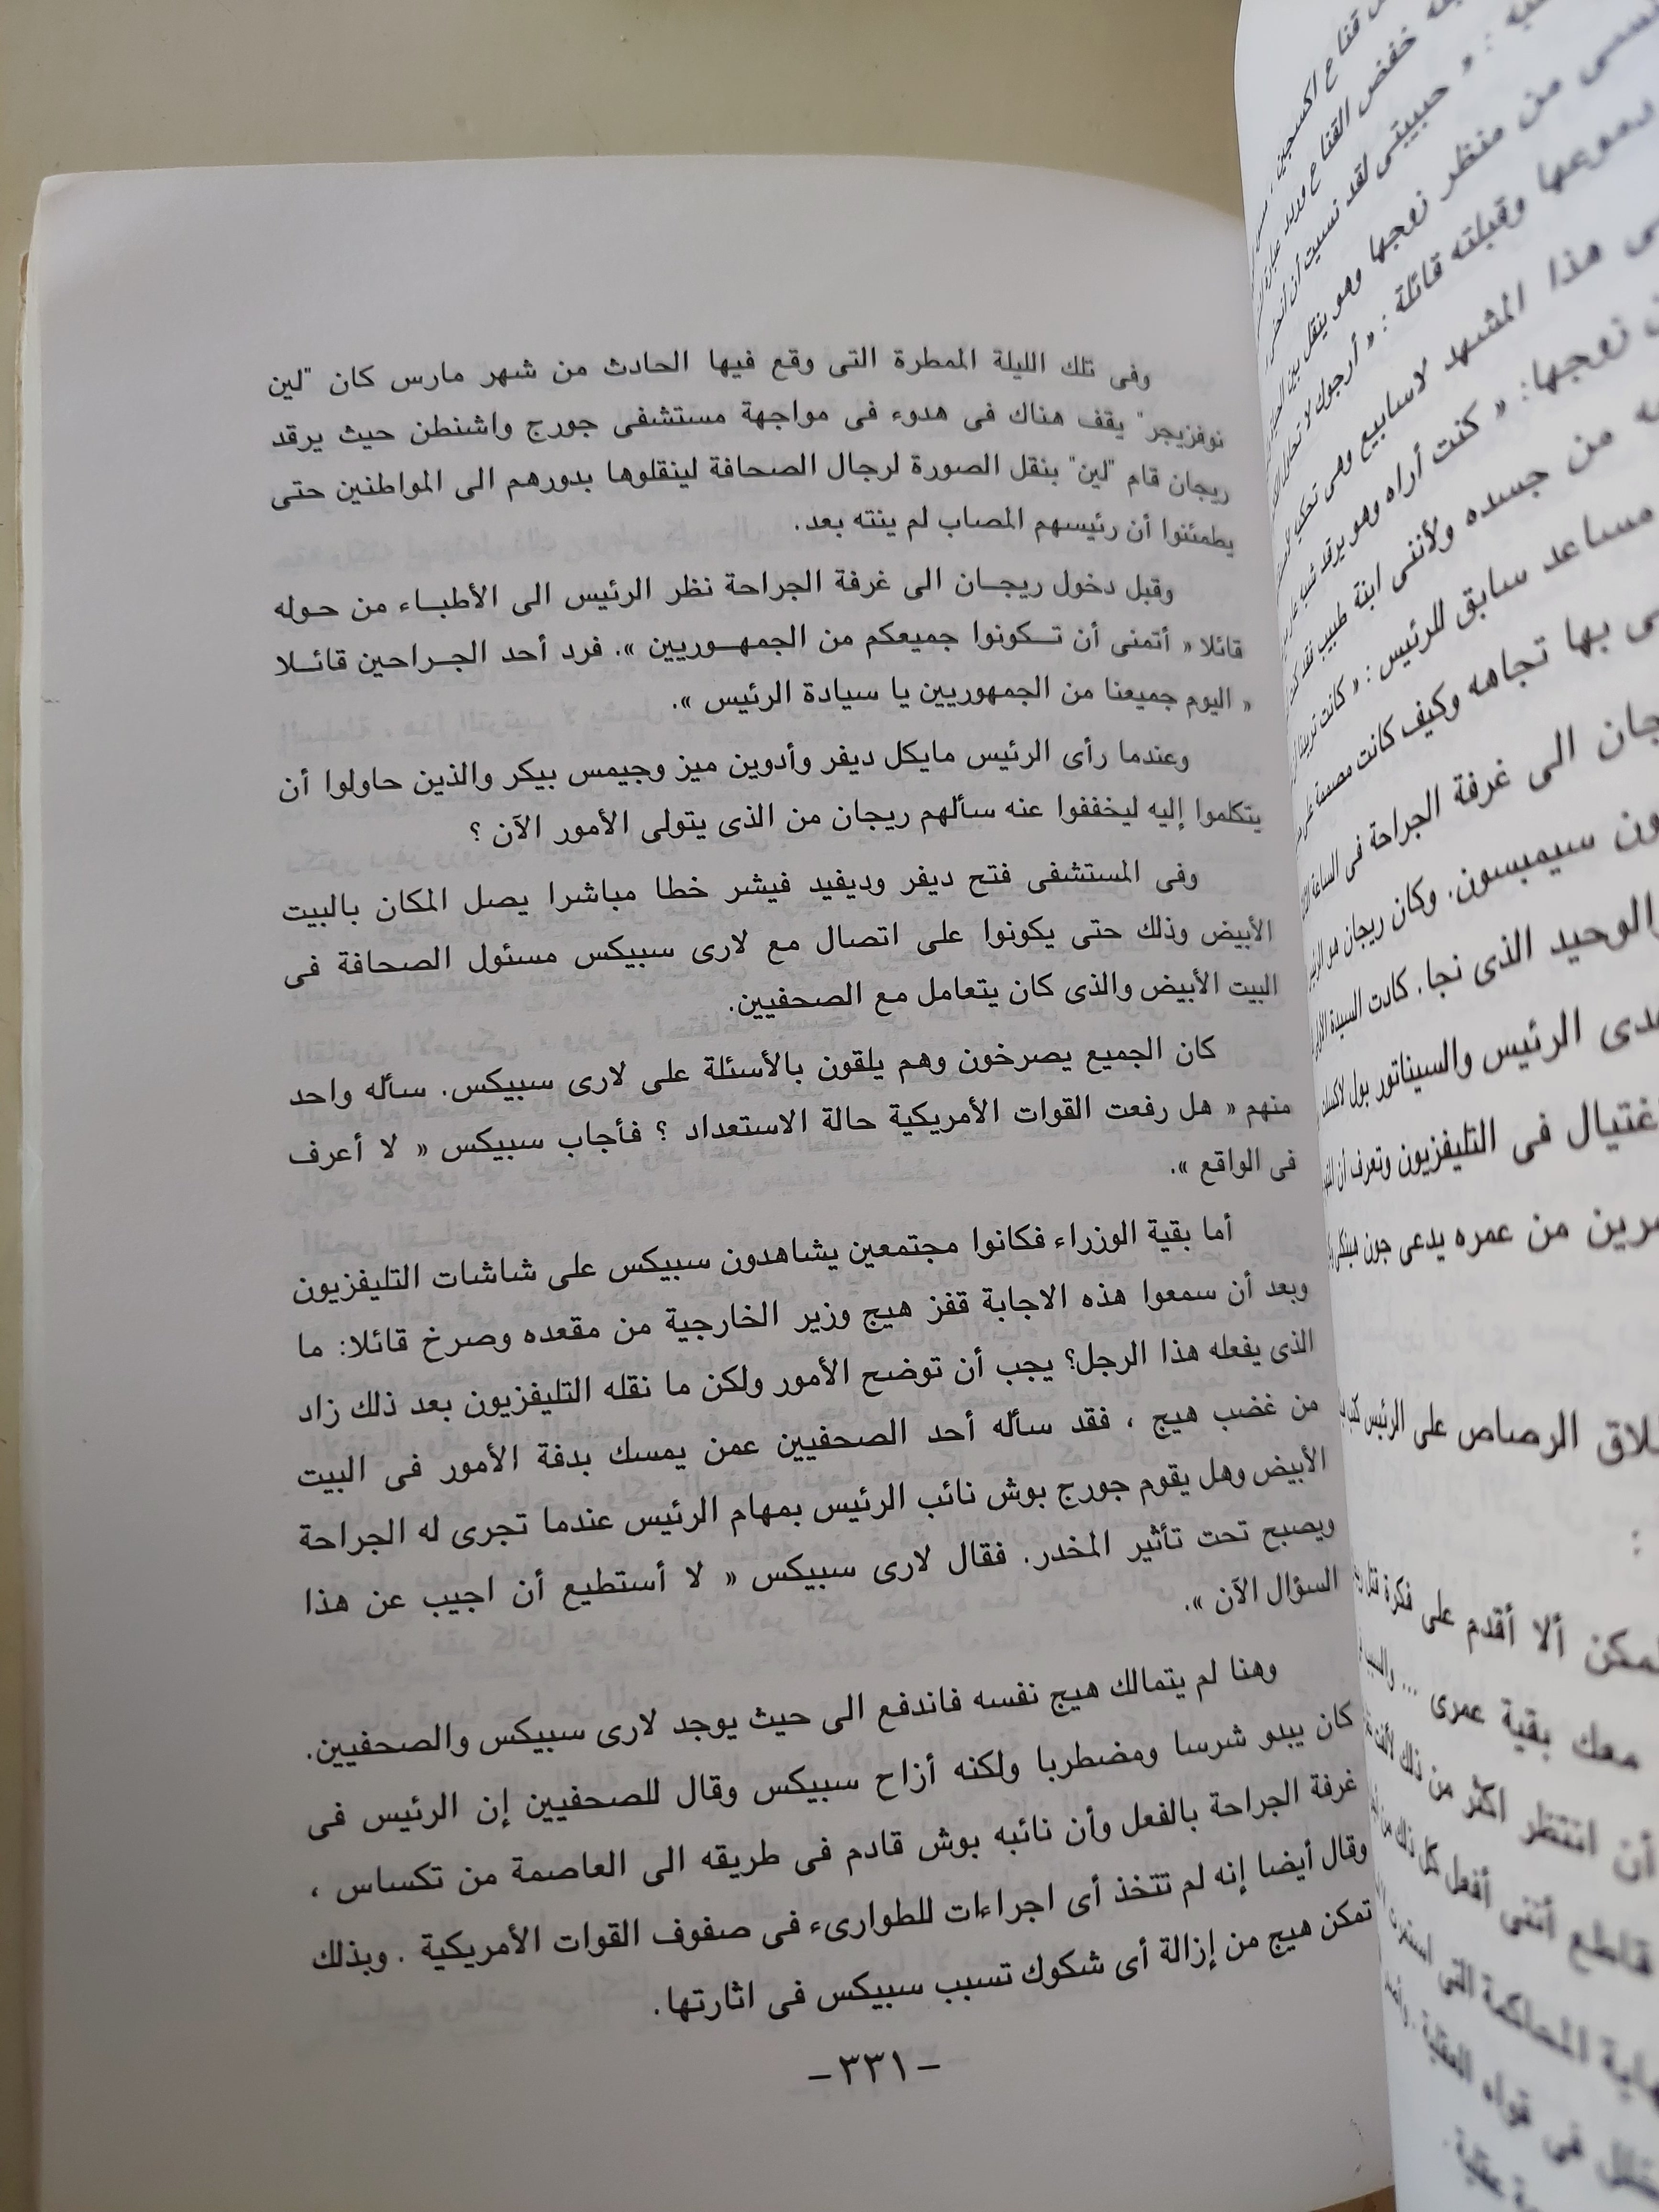 وفى تلك الليلة الممطرة التى وقع فيها الحادث من شهر مارس كان "لين
نوفزيجر" يقف هناك فى هدوء فى مواجهة مستشفى جورج واشنطن حيث يرقد
ريجان قام "لين" بنقل الصورة لرجال الصحافة لينقلوها بدورهم الى المواطنين حتى
يطمئنوا أن رئيسهم المصاب لم ينته بعد.
وقبل دخول ريجـان الى غرفة الجراحة نظر الرئيس الى الأطبـاء من حـوله
قائلا « أتمنى أن تـكونوا جميعكم من الجمهـوريين ». فرد أحد الجـراحين قائـلا
« اليوم جميعنا من الجمهوريين يا سيادة الرئيس ».
وعندما رأى الرئيس مايكل ديفر وأدوين ميز وجيمس بيكر والذين حاولوا أن
يتكلموا إليه ليخففوا عنه سألهم ريجان من الذى يتولى الأمور الآن ؟
وفى المستشفى فتح ديفر وديفيد فيشر خطا مباشرا يصل المكان بالبيت
الأبيض وذلك حتى يكونوا على اتصال مع لارى سبيكس مسئول الصحافة فى
البيت الأبيض والذى كان يتعامل مع الصحفيين.
كان الجميع يصرخون وهم يلقون بالأسئلة على لارى سبيكس. سأله واحد
منهم « هل رفعت القوات الأمريكية حالة الاستعداد ؟ فأجاب سبيكس « لا أعرف
فى الواقع ».
أما بقية الوزراء فكانوا مجتمعين يشاهدون سبيكس على شاشات التليفزيون
وبعد أن سمعوا هذه الاجابة قفز هيج وزير الخارجية من مقعده وصرخ قائلا: ما
الذى يفعله هذا الرجل؟ يجب أن توضح الأمور ولكن ما نقله التليفزيون بعد ذلك زاد
من غضب هيج ، فقد سأله أحد الصحفيين عمن يمسك بدفة الأمور فى البيت
الأبيض وهل يقوم جورج بوش نائب الرئيس بمهام الرئيس عندما تجرى له الجراحة
ويصبح تحت تأثير المخدر. فقال لارى سبيكس « لا أستطيع أن اجيب عن هذا
السؤال الآن ».
وهنا لم يتمالك هيج نفسه فاندفع الى حيث يوجد لارى سبيكس والصحفيين.
كان يبدو شرسا ومضطربا ولكنه أزاح سبيكس وقال للصحفيين إن الرئيس فى
غرفة الجراحة بالفعل وأن نائبه بوش قادم فى طريقه الى العاصمة من تكساس ،
وقال أيضا إنه لم تتخذ أى اجراءات للطوارىء فى صفوف القوات الأمريكية . وبذلك
تمكن هيج من إزالة أى شكوك تسبب سبيكس فى اثارتها.
-٣٣١-
قناع اكسجين
خفض القناع
: « حبيبتى لقد نسيت أن
من منظر زوجها وهو ينقل
دموعها وقبلته قائلة : « أرجوك لا
هذا المشهد لاسابيع وهى تحكى
زوجها: « كنت أراه وهو يرقد شبه
من جسده ولأننى ابنة طبيب فقد
مساعد سابق للرئيس : « كانت
بها تجاهه وكيف كانت مصممة
الى غرفة الجراحة فى الساعة
سيمبسون. وكان ريجان هو
الوحيد الذى نجا. كادت السيدة
الرئيس والسيناتور بول
فى التليفزيون وتعرف أن
من عمره يدعى جون
الرصاص على الرئيس
ألا أقدم على فكرة قتل
معك بقية عمرى ...
أن انتظر اكثر من ذلك
قاطع أننى أفعل كل ذلك من
المحاكمة التى
فى قواه العقلية